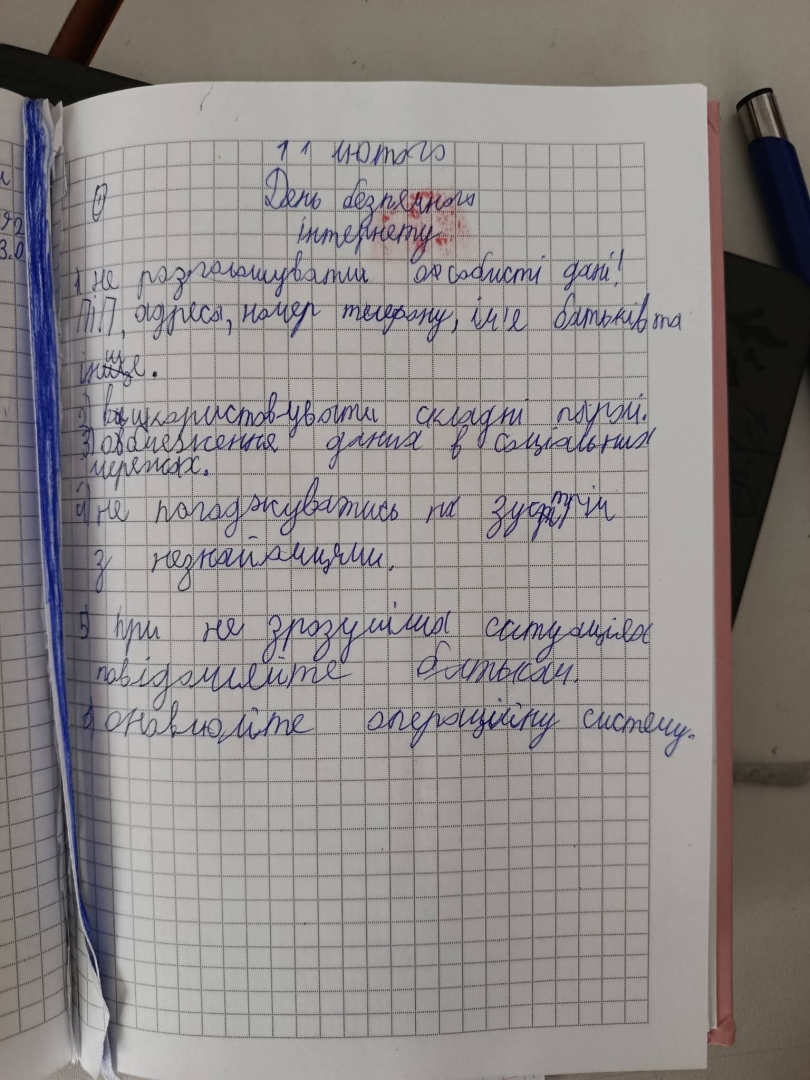 11 лютого
День безпечного
інтернету
1 не розголошувати особисті дані!
ПІП, адреса, номер телефону, ім'я батьків та
інше.
2) використовувати складні паролі.
3) обмеження даних в соціальних
мережах.
4) не погоджуватись на зустріч
з незнайомцями.
5 при не зрозумілих ситуаціях
повідомляйте батькам.
6) оновлюйте операційну систему.
92
3.0